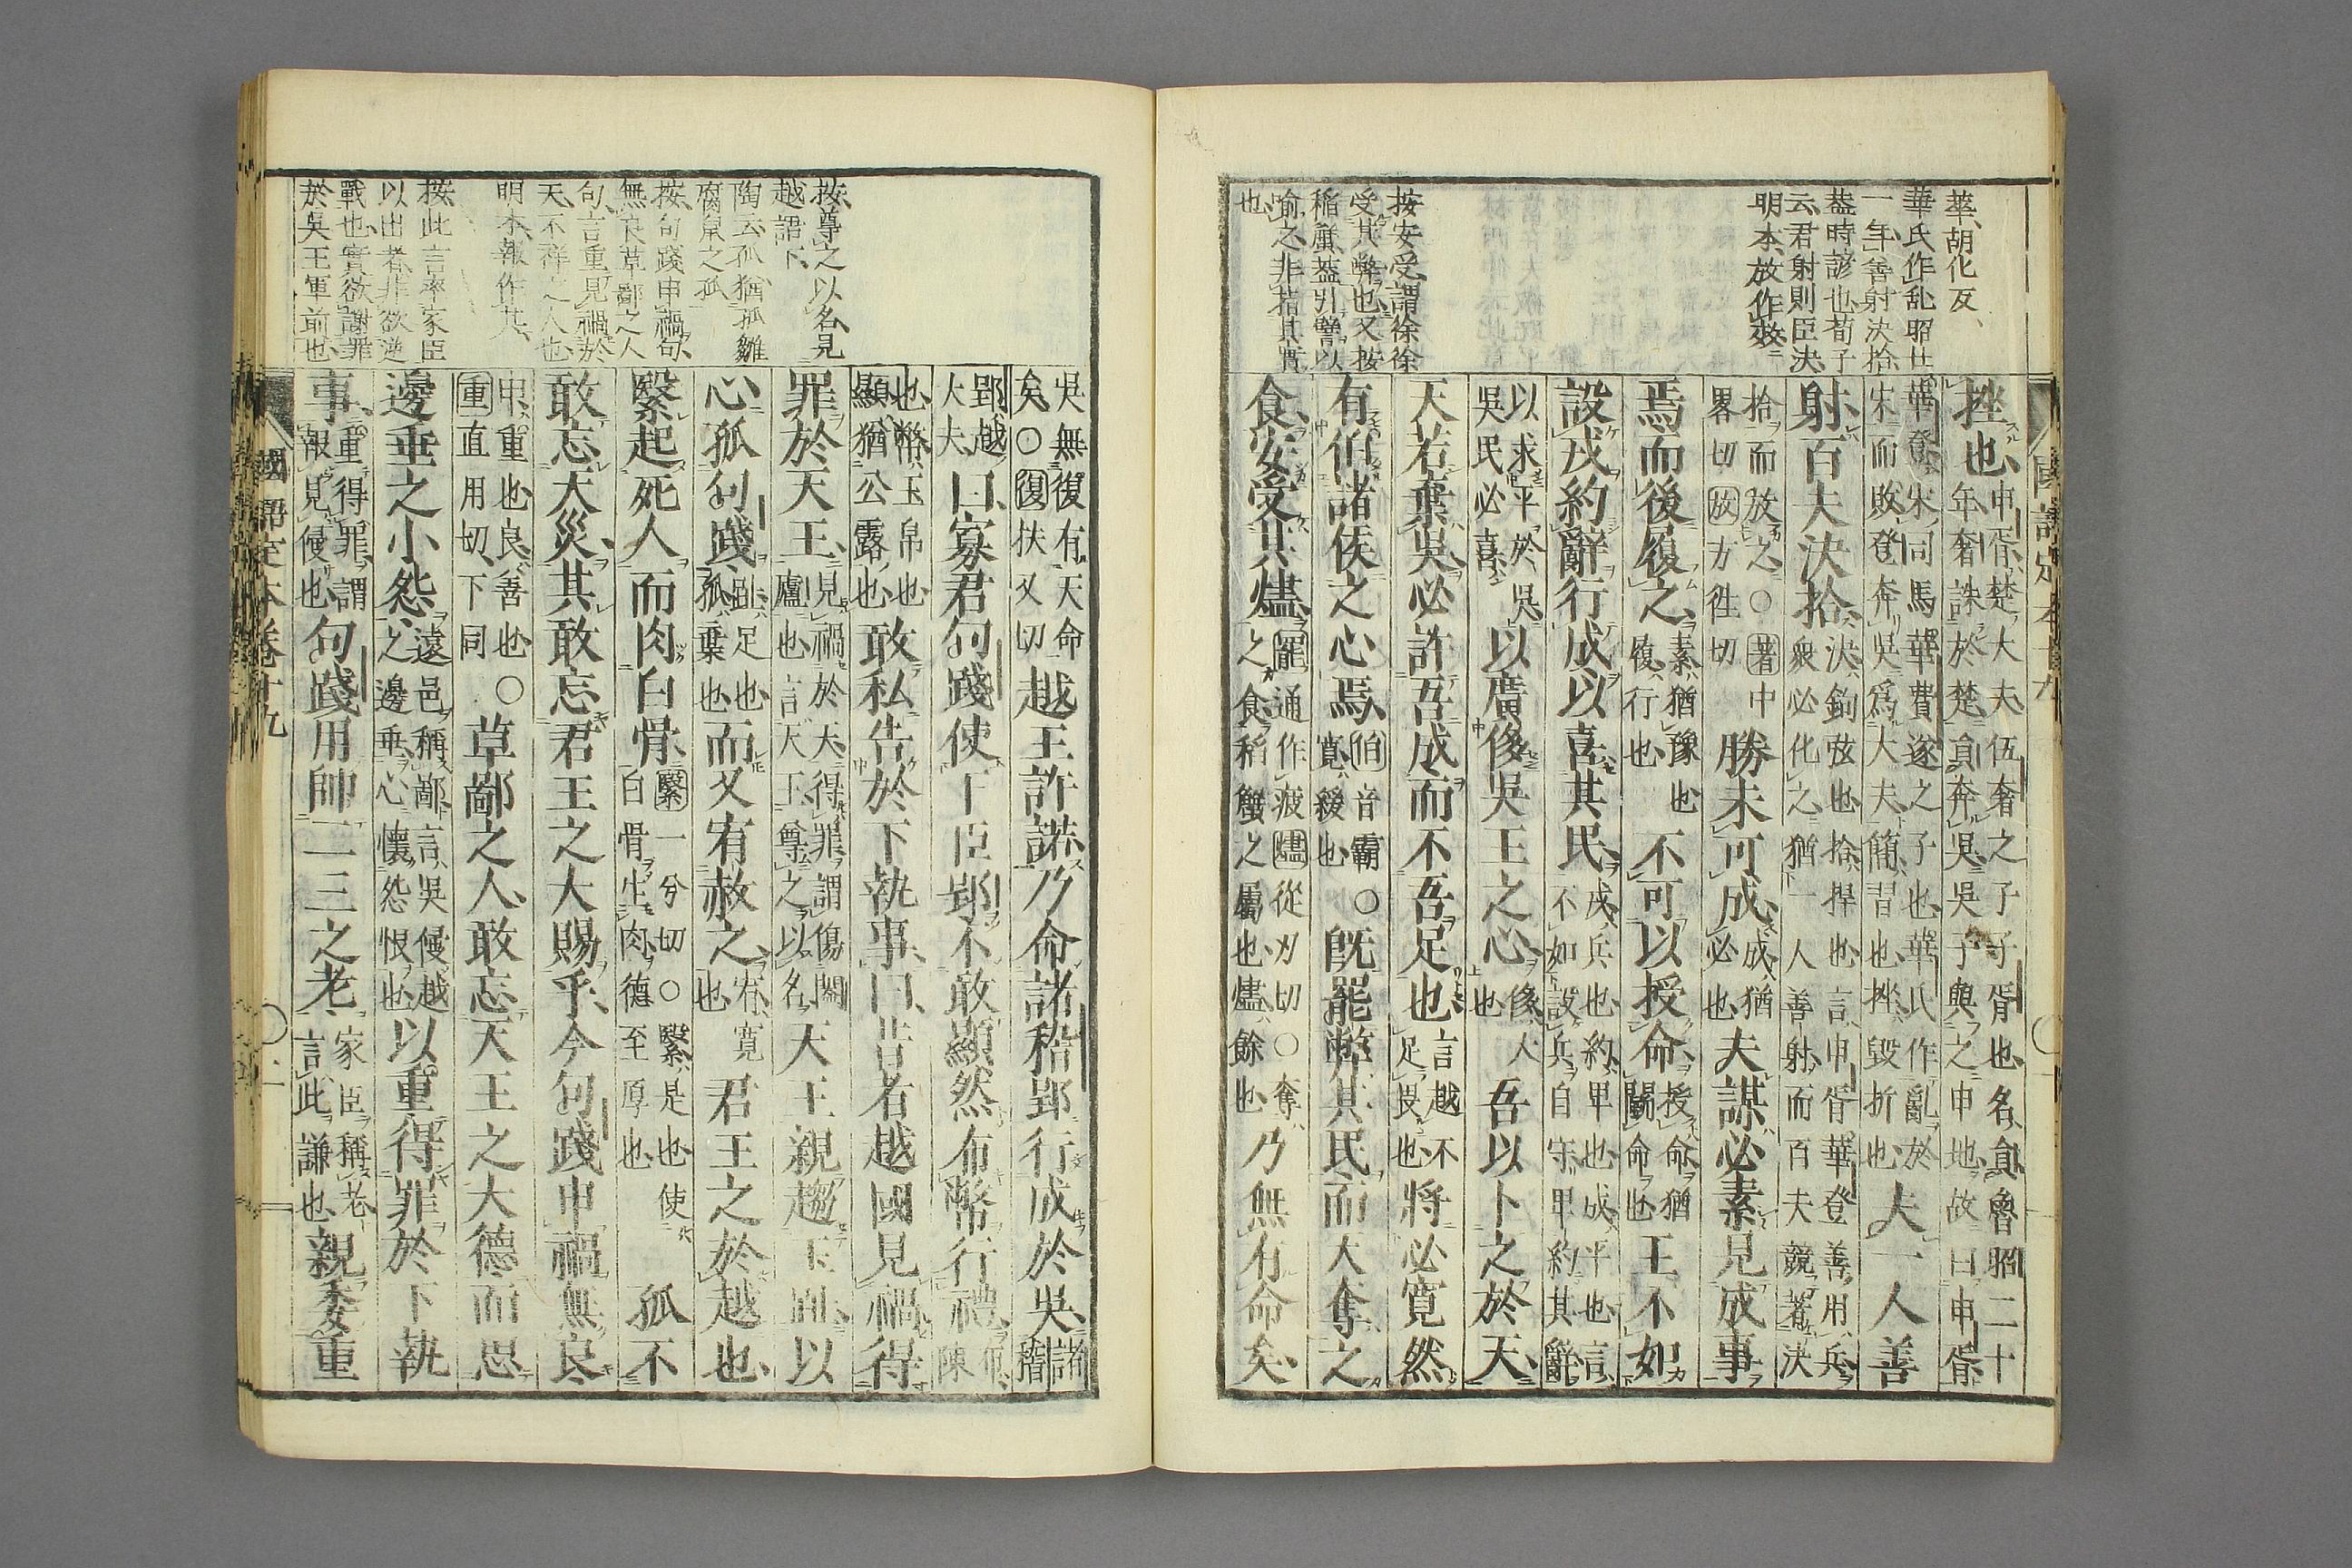 國語定本十九
華、胡化反、
華氏作乱昭廿
一年善射決拾
葢時諺也荀子
云君射則臣決
明本放作效
按安受謂徐徐
受其弊也又按
稲蟹葢引譬以
喩之非指其實
也
挫也申胥楚大夫伍奢之子子胥也名員魯昭二十年奢誅於楚員奔吳吳子與之申地故曰申胥
華登宋司馬華費遂之子也華氏作亂於宋而敗登奔吳爲大夫簡習也挫毀折也夫一人善
射百夫決拾決鉤弦也拾捍也言申胥華登善用兵衆必化之猶一人善射而百夫競著決
拾而放之○著中畧切放方徃切勝未可成成猶必也夫謀必素見成事
焉而後履之素猶豫也履行也不可以授命授命猶鬭命也王不如
設戎約辭行成以喜其民戎兵也約卑也成平也言不如設兵自守卑約其辭
以求平於吳吳民必喜以廣侈吳王之心侈大也吾以卜之於天
天若棄吳必許吾成而不吾足也言越不足畏也將必寬然
有伯諸侯之心焉伯音霸○寬緩也既罷弊其民而天奪之
食安受其燼罷通作疲燼從刄切○奪之食稻蟹之屬也燼餘也乃無有命矣
按尊之以名見
越語下
陶云孤猶孤雛
腐鼠之孤
按句踐申禍句
無良草鄙之人
句言重見禍於
天不祥之人也
明本報作其
按此言率家臣
以出者非欲逆
戰也實欲謝罪
於吳王軍前也
吳無復有天命矣○復扶又切越王許諾乃命諸稽郢行成於吳諸稽
郢越大夫曰寡君句踐使下臣郢不敢顯然布幣行禮布陳
也幣玉帛也顯猶公露也敢私告於下執事曰昔者越國見禍得
罪於天王見禍於天得罪謂傷闔廬也言天王尊之以名天王親趨玉趾以
心孤句踐趾足也孤棄也而又宥赦之宥寬也君王之於越也
繄起死人而肉白骨繄一兮切○繄是也使白骨生肉德至厚也孤不
敢忘天災其敢忘君王之大賜乎今句踐申禍無良
申重也良善也○重直用切下同草鄙之人敢忘天王之大德而思
邊垂之小怨遠邑稱鄙言吳侵越之邊垂心懷怨恨也以重得罪於下執
事重得罪謂報見侵也句踐用帥二三之老家臣稱老言此謙也親委重
國語定本卷十九